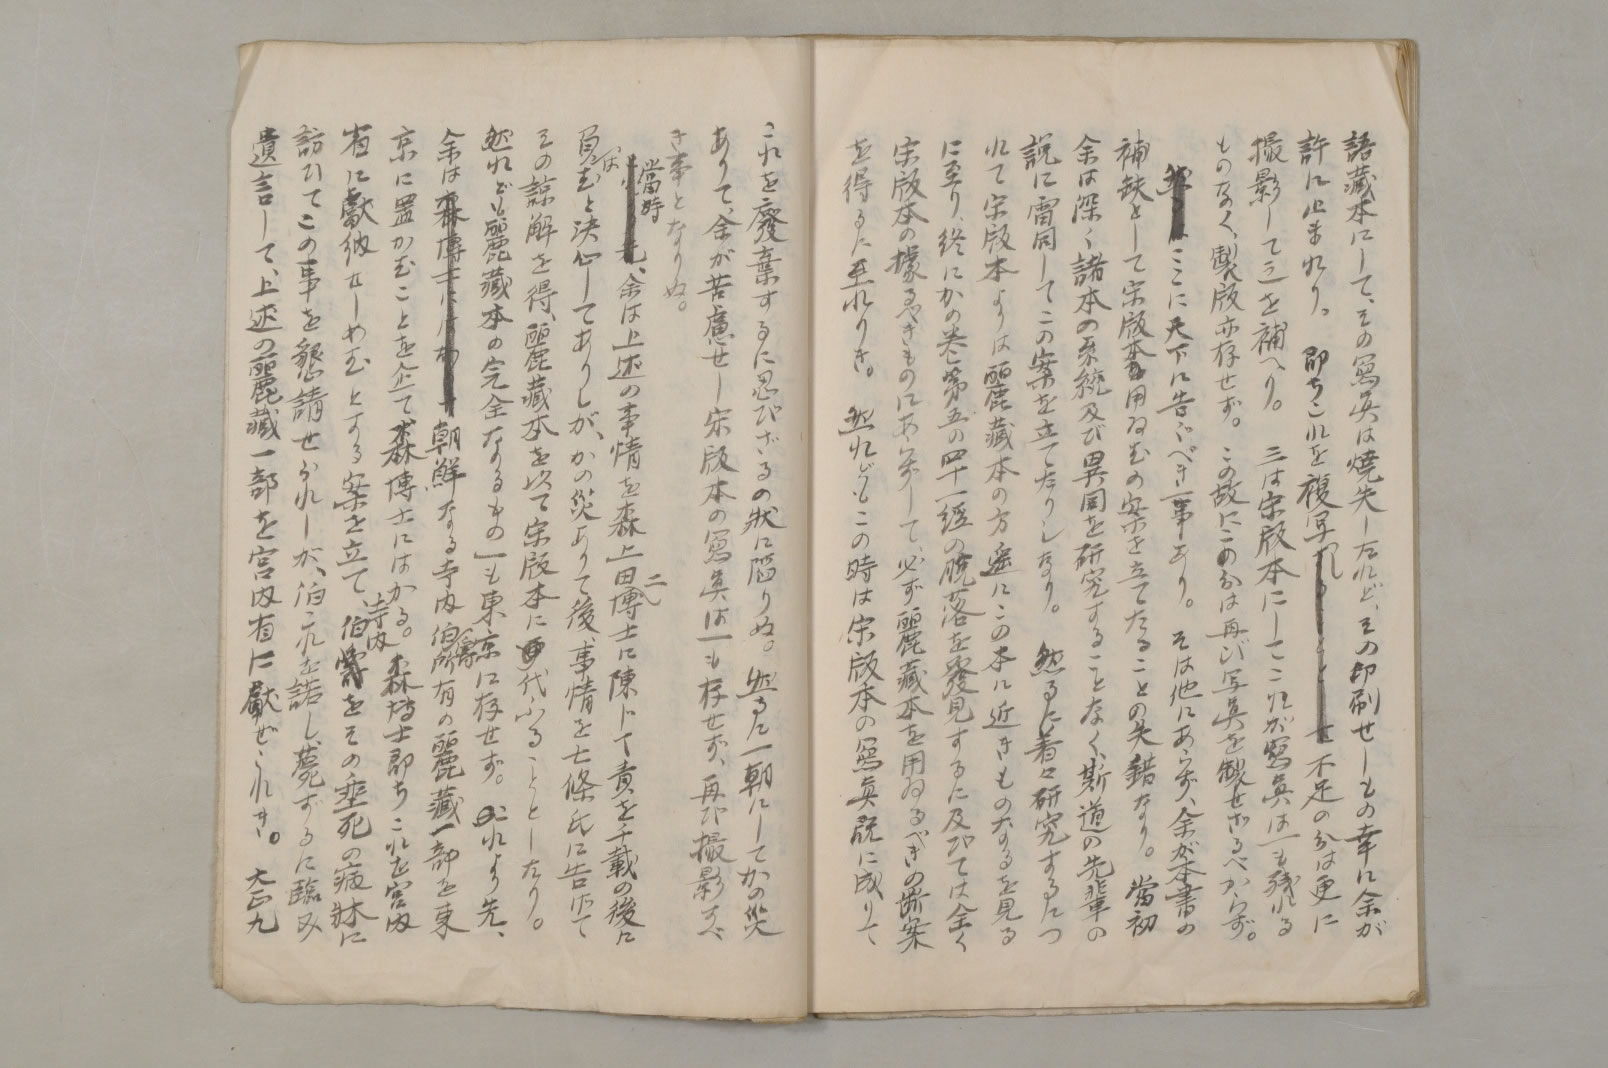 語藏本にして、その寫眞は燒失したれど、その印刷せしもの幸に余が
許に止まれり。即ちこれを複写し不足の分は更に
撮影して之を補へり。三は宋版本にしてこれが寫眞は一も殘れる
ものなく、製版亦存せず。この故にこの分は再び写眞を製せざるべからず。
ここに天下に告ぐべき一事あり。そは他にあらず、余が本書の
補缺として宋版本を用ゐむの案を立てたることの失錯なり。當初
余は深く諸本の系統及び異同を研究することなく、斯道の先輩の
說に雷同してこの案を立てたりしなり。然るに着々研究するにつ
れて宋版本よりは麗藏本の方遙にこの本に近きものなるを見る
に至り、終にかの卷第五の四十一經の脫落を發見するに及びては全く
宋版本の據るべきものにあらずして、必ず麗藏本を用ゐるべきの斷案
を得るに至れりき。然れどもこの時は宋版本の寫眞既に成りて
これを廢棄するに忍びざるの狀に陷りぬ。然るに一朝にしてかの災
ありて、余が苦慮せし宋版本の寫眞は一も存せず、再び撮影すべ
き事となりぬ。
當時、余は上述の事情を森上田二博士に陳じて責を千載の後に
負はむと決心してありしが、かの災ありて後、事情を七條氏に告げて
その諒解を得、麗藏本を以て宋版本に代ふることとしたり。
然れども麗藏本の完全なるもの一も東京に存せず。これより先、
余は朝鮮なる寺内伯爵所有の麗藏一部を東
京に置かむことを企て森博士にはかる。森博士即ちこれを宮内
省に獻納せしめむとする案を立て、寺内伯をその垂死の病牀に
訪ひてこの事を懇請せられしが、伯これを諾し、薨ずるに臨み
遺言して、上述の麗藏一部を宮内省に獻ぜられき。大正九